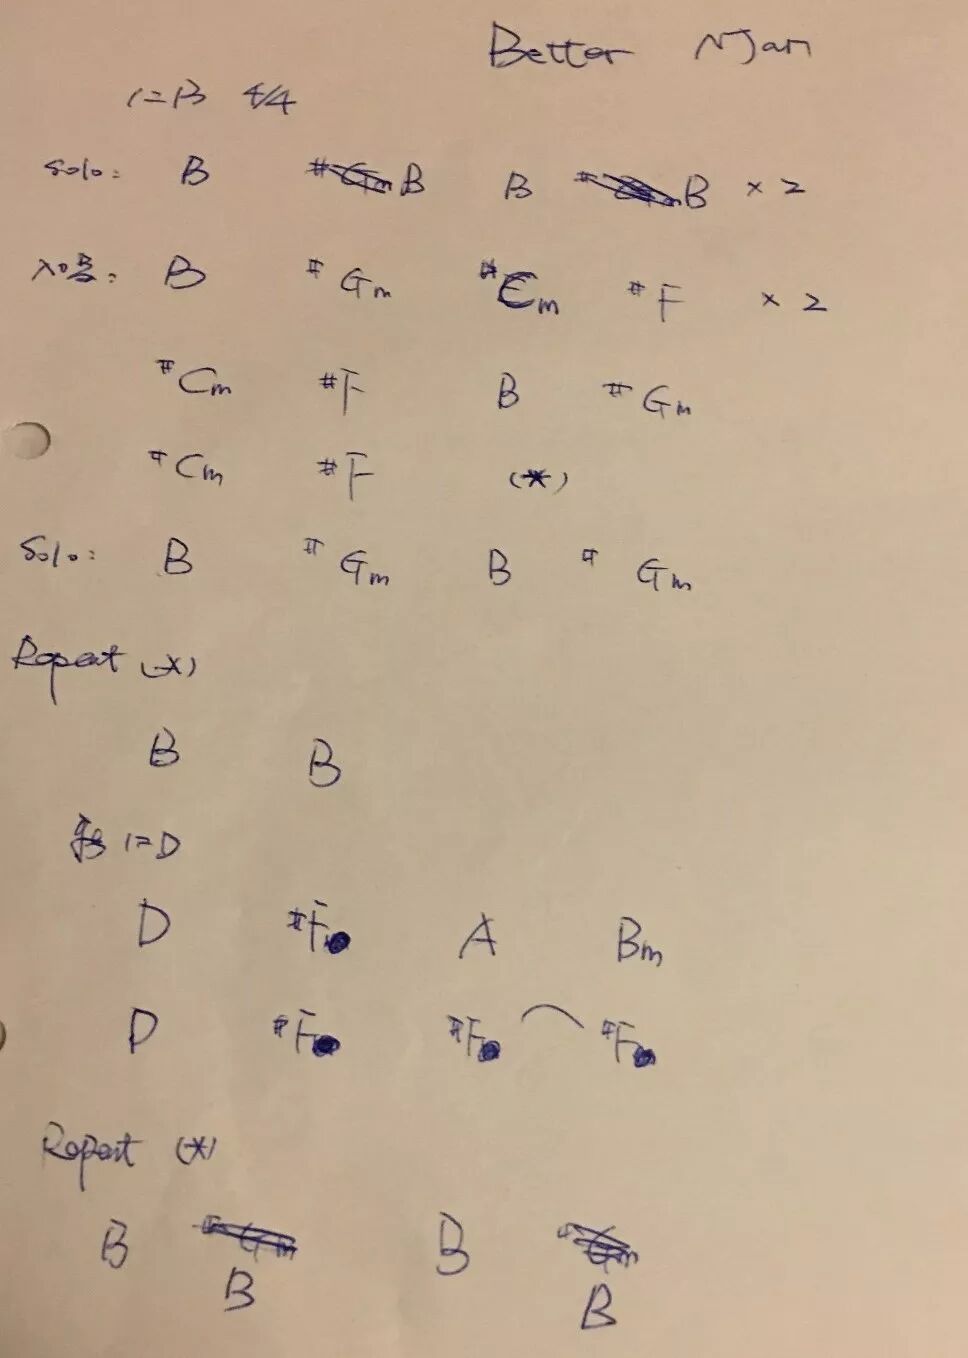 Better Man
1=B 4/4
Solo: B B B B × 2
B #Gm #Cm #F × 2
#Cm #F B #Gm
#Cm #F (*)
Solo: B #Gm B #Gm
Repeat (*)
B B
1=D
D #F A Bm
D #F #F #F
Repeat (*)
B B
B B